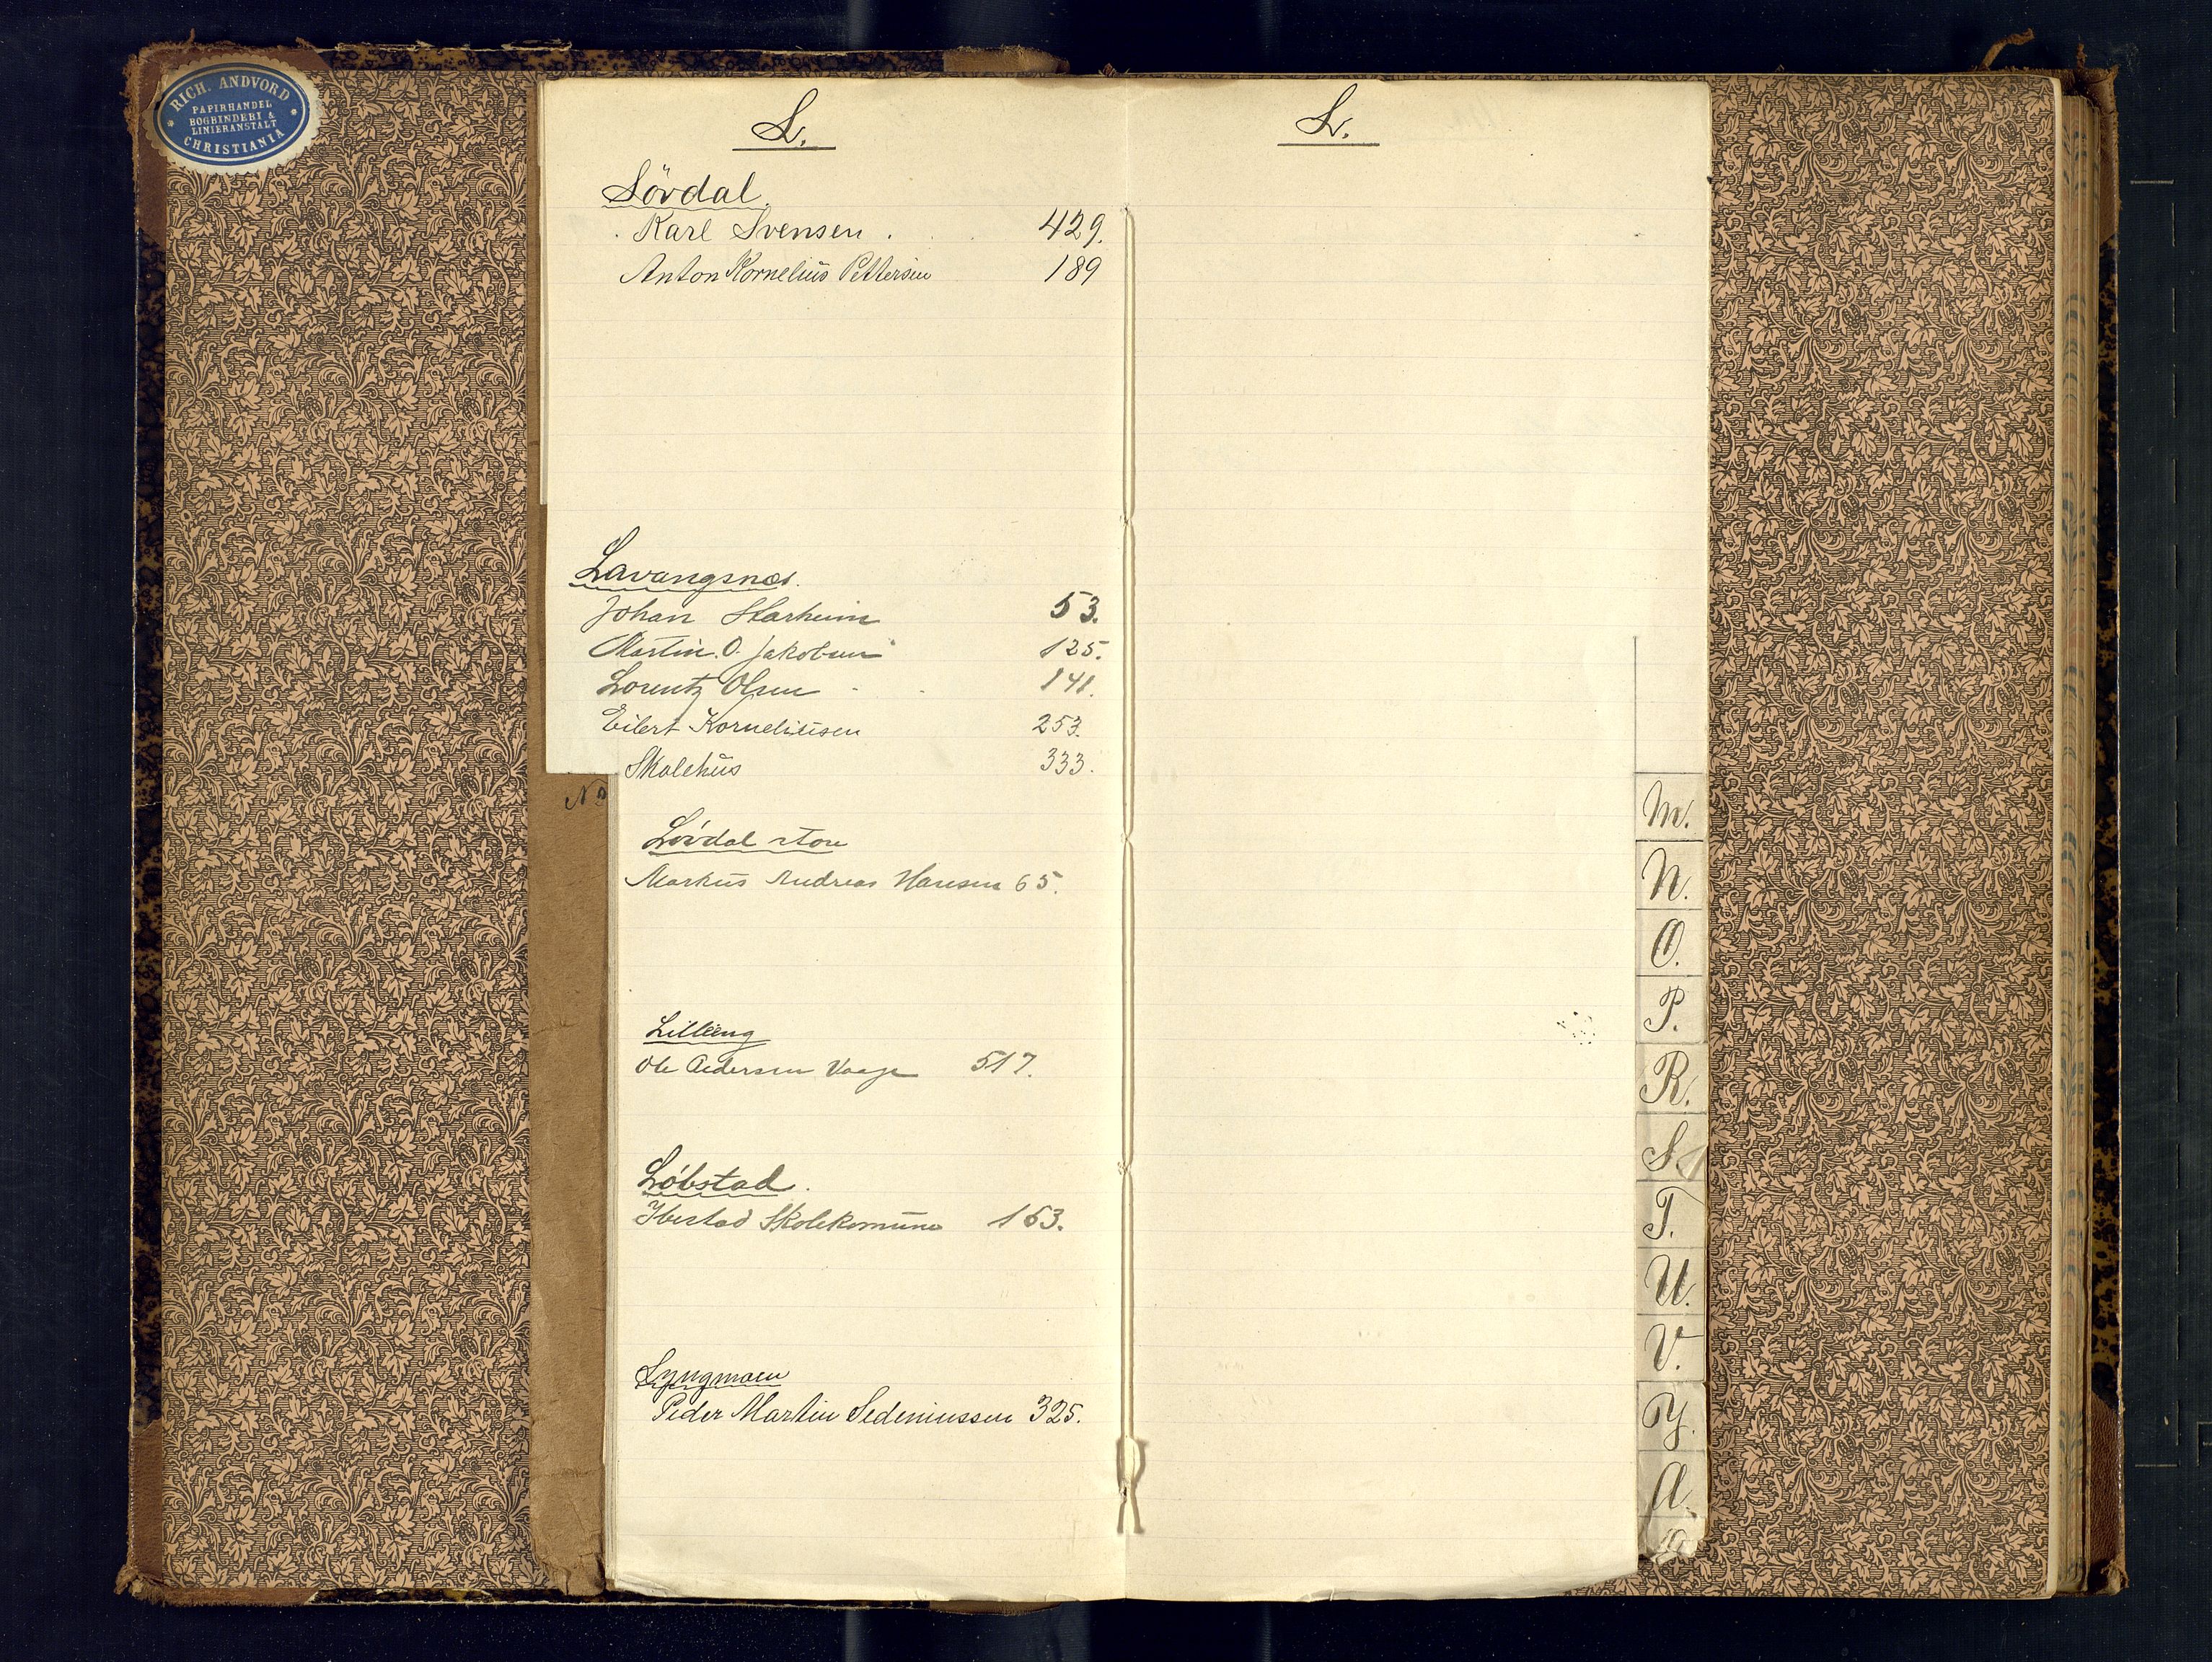 RICH. ANDVORD
PAPIRHANDEL
BOGBINDERI &
LINIERANSTALT
CHRISTIANIA
L.
Lövdal.
Karl Svensen . 429.
Anton Kornelius Pettersen 189
Lavangsnæs.
Johan Starheim 53.
Martin. O. Jakobsen 125.
Lorentz Olsen 141.
Eilert Korneliusen 253.
Skolehus 333.
Lövdal store
Markus Andreas Hansen 65.
Lilleeng
Ole Pedersen Vaage 517.
Löbstad.
Ibestad Skolekomune 153.
Lyngmoen
Peder Martin Sedeniussen 325.
No
L.
M.
N.
O.
P.
R.
S.
T.
U.
V.
Y.